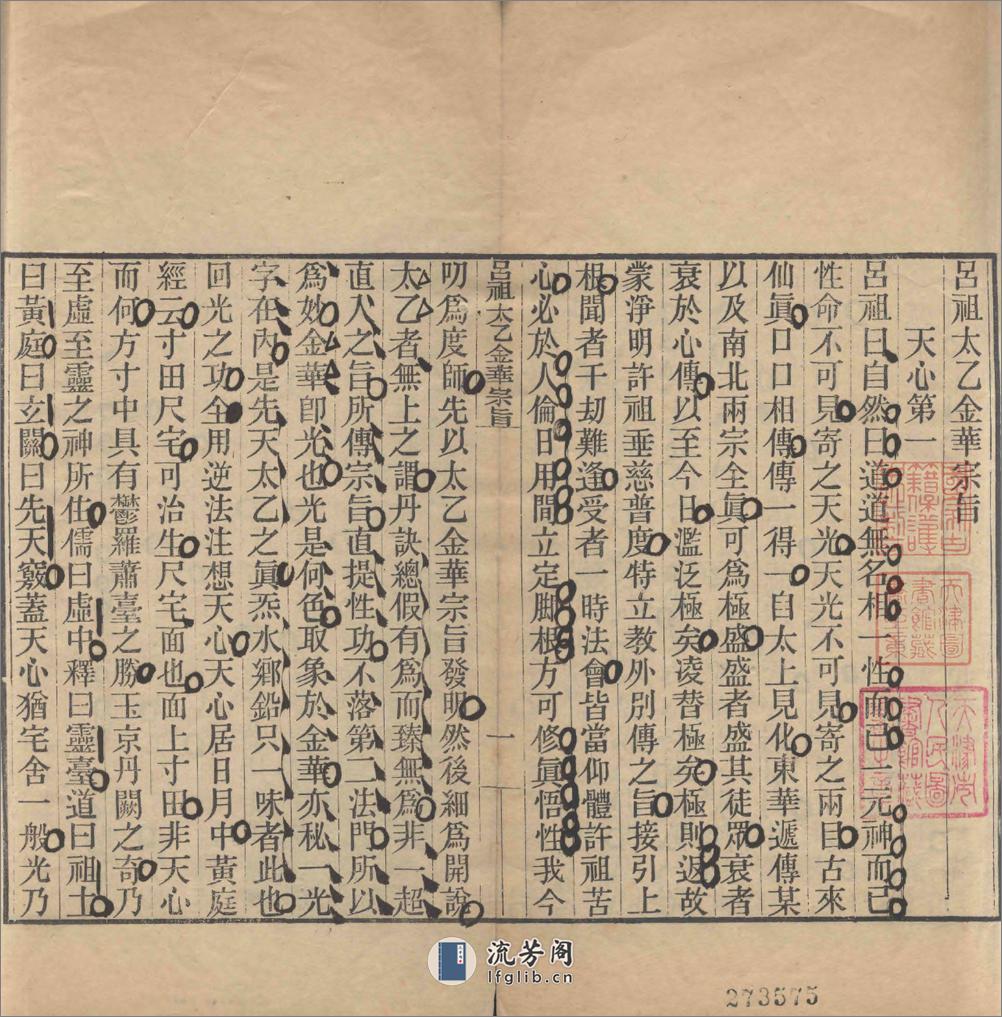 呂祖太乙金華宗旨
天心第一
呂祖曰自然曰道道無名相一性而已一元神而已
性命不可見寄之天光天光不可見寄之兩目古來
仙眞口口相傳傳一得一自太上見化東華遞傳某
以及南北兩宗全眞可爲極盛盛者盛其徒眾衰者
衰於心傳以至今日濫泛極矣凌替極矣極則返故
蒙淨明許祖垂慈普度特立教外別傳之旨接引上
根聞者千劫難逢受者一時法會皆當仰體許祖苦
心必於人倫日用間立定脚根方可修眞悟性我今
呂祖太乙金華宗旨 一
叨爲度師先以太乙金華宗旨發明然後細爲開說
太乙者無上之謂丹訣總假有爲而臻無爲非一超
直入之旨所傳宗旨直提性功不落第二法門所以
爲妙金華卽光也光是何色取象於金華亦秘一光
字在內是先天太乙之眞炁水鄉鉛只一味者此也
回光之功全用逆法注想天心天心居日月中黃庭
經云寸田尺宅可治生尺宅面也面上寸田非天心
而何方寸中具有鬱羅蕭臺之勝玉京丹闕之奇乃
至虛至靈之神所住儒曰虛中釋曰靈臺道曰祖土
曰黃庭曰玄關曰先天竅蓋天心猶宅舍一般光乃
流芳阁
lfglib.cn
273575